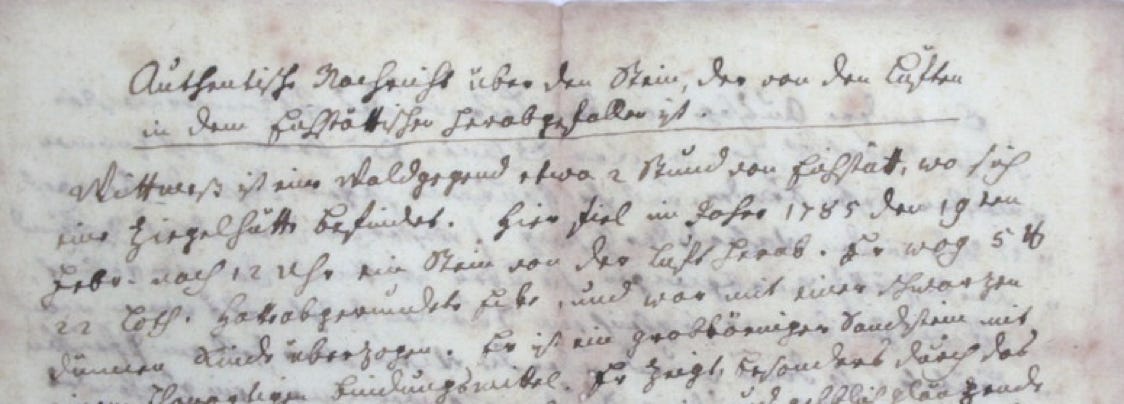 Authentische Nachricht über den Stein, der von den Lüften
in dem Eichstättischen herabgefallen ist.
Wittmeß ist eine Waldgegend etwa 2 Stund von Eichstätt, wo sich
eine Ziegelhütte befindet. Hier fiel im Jahre 1785 den 19ten
Febr. nach 12 Uhr ein Stein von der Luft herab. Er wog 5 ℔
22 Loth. Hatte abgerundete Eke, und war mit einer schwarzen
dünnen Rinde überzogen. Er ist ein grobkörniger Sandstein mit
einem thonartigen Bindungsmittel. Er zeigt, besonders durch das
und glänzende